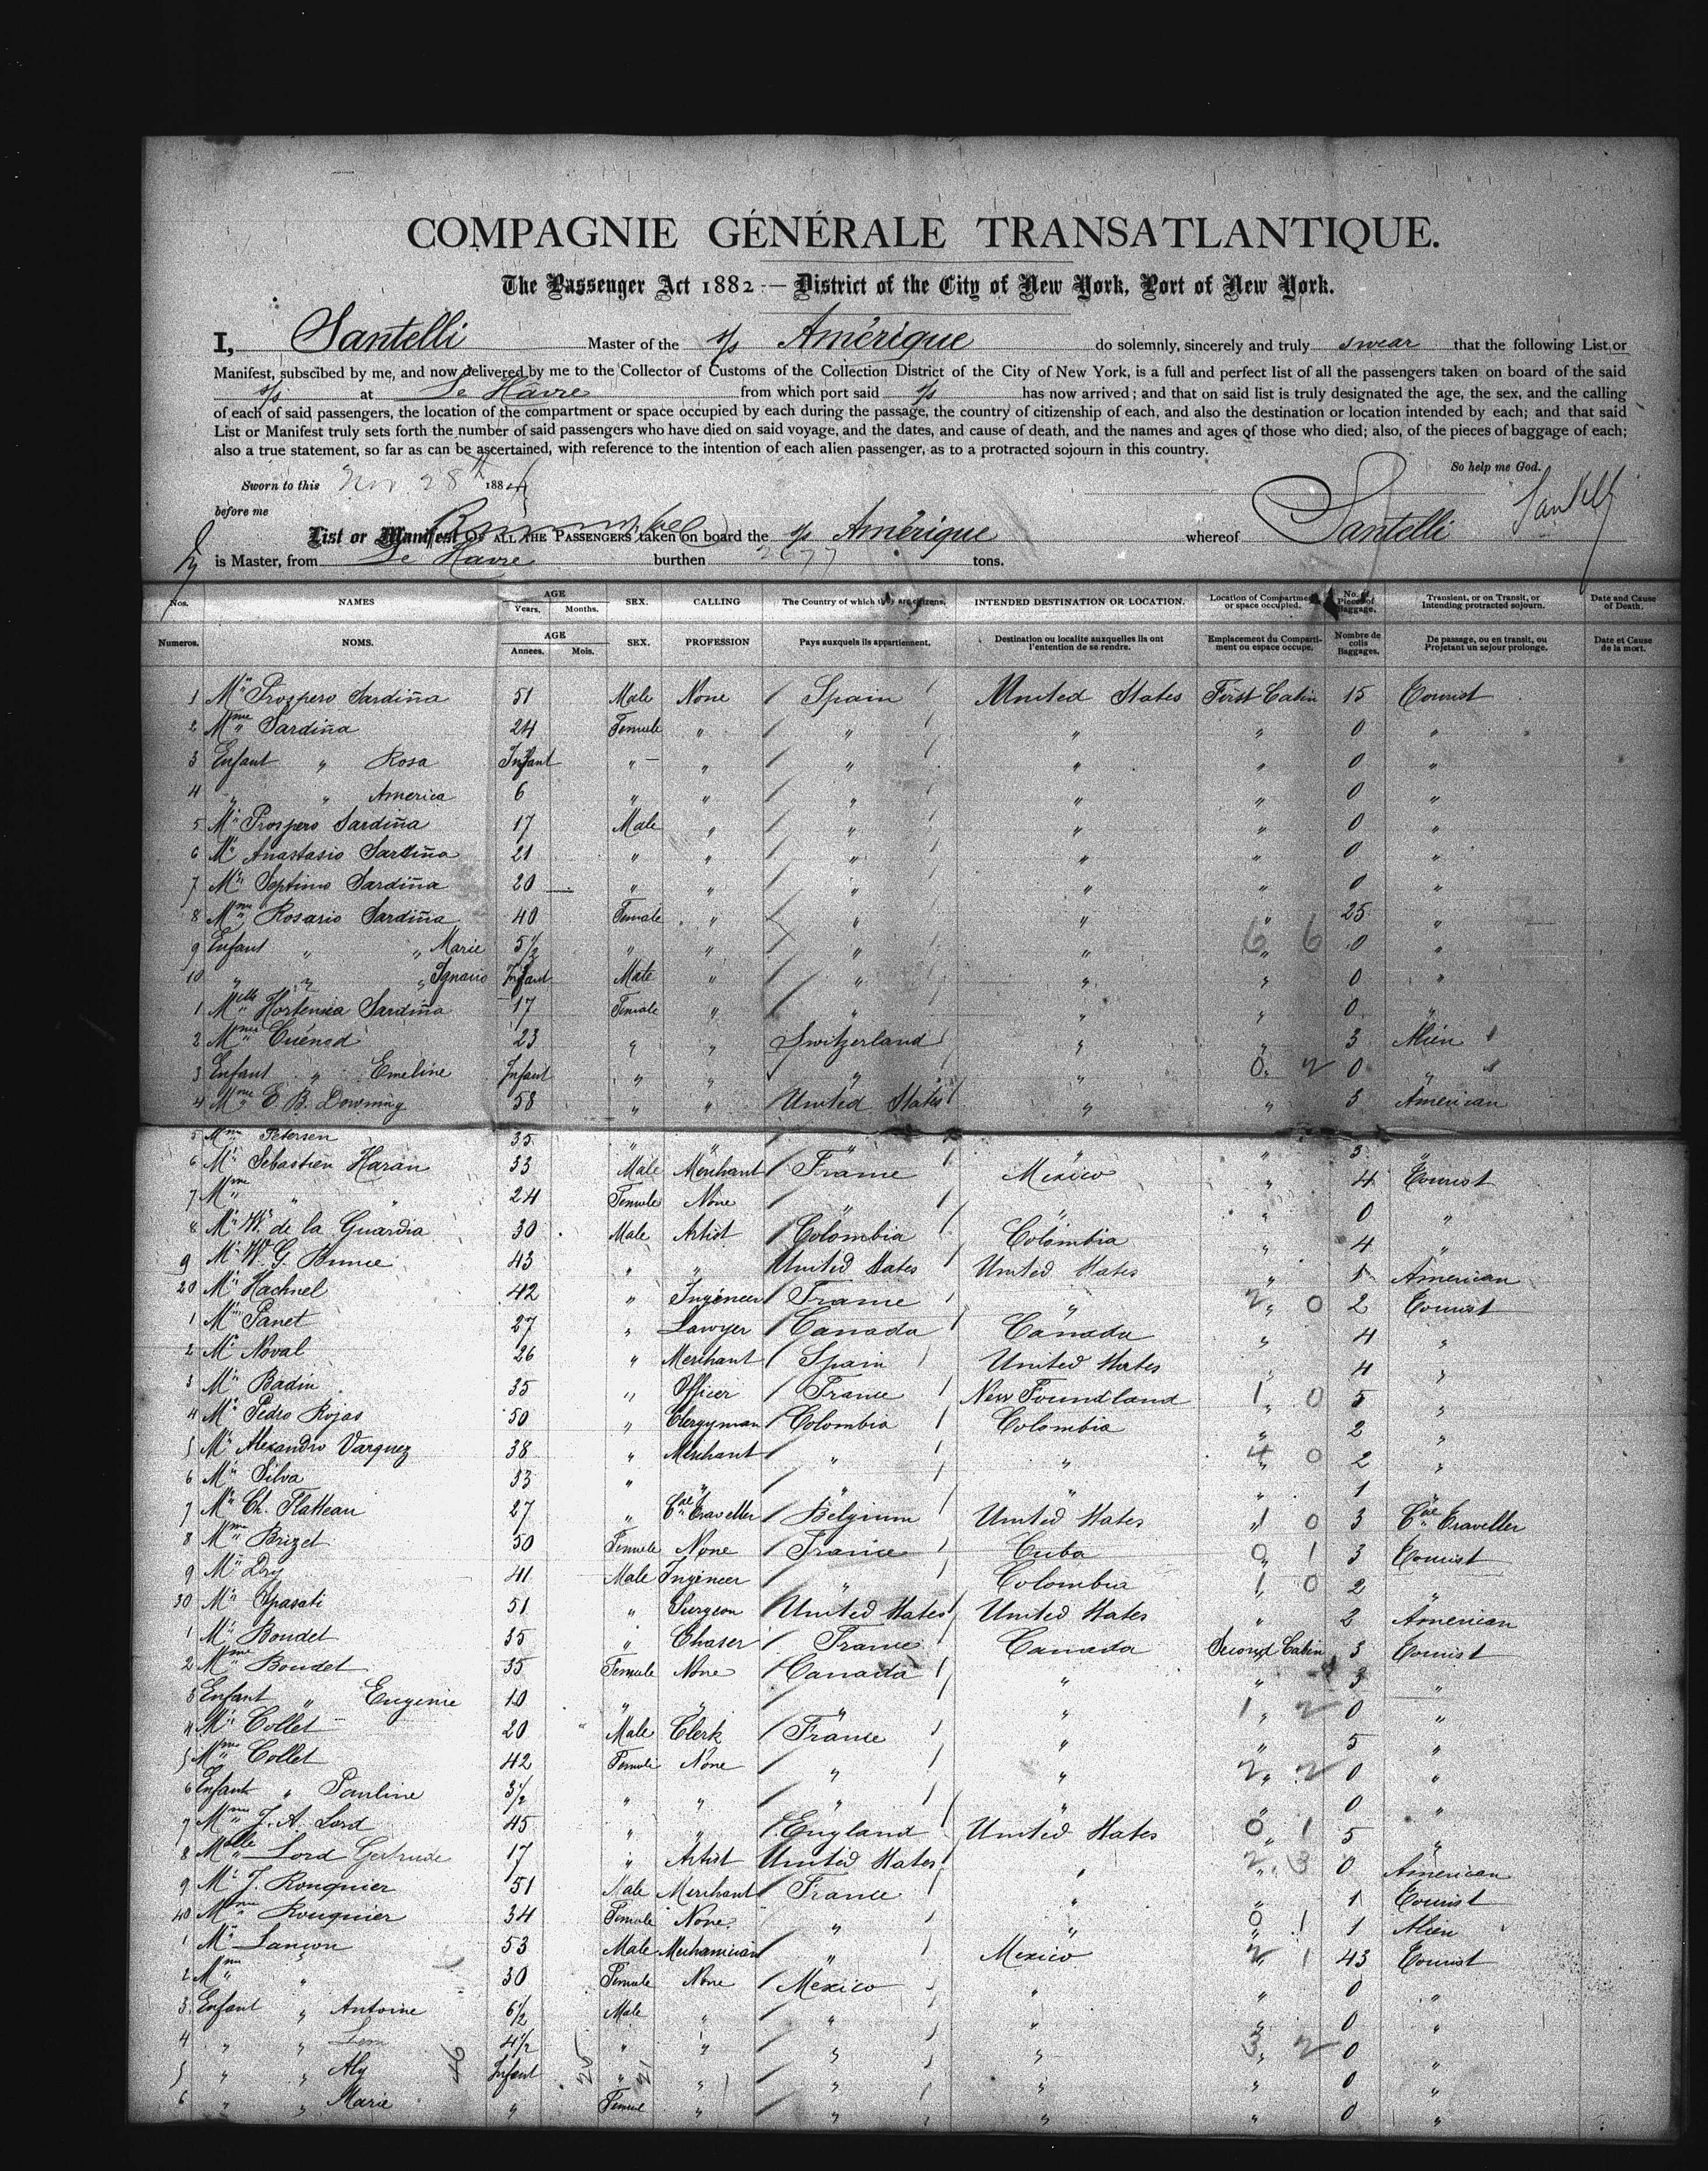 COMPAGNIE GÉNÉRALE TRANSATLANTIQUE.
The Passenger Act 1882 — District of the City of New York, Port of New York.
I, Santelli Master of the s/s Amérique do solemnly, sincerely and truly swear that the following List or
Manifest, subscibed by me, and now delivered by me to the Collector of Customs of the Collection District of the City of New York, is a full and perfect list of all the passengers taken on board of the said
s/s at Le Havre from which port said s/s has now arrived; and that on said list is truly designated the age, the sex, and the calling
of each of said passengers, the location of the compartment or space occupied by each during the passage, the country of citizenship of each, and also the destination or location intended by each; and that said
List or Manifest truly sets forth the number of said passengers who have died on said voyage, and the dates, and cause of death, and the names and ages of those who died; also, of the pieces of baggage of each;
also a true statement, so far as can be ascertained, with reference to the intention of each alien passenger, as to a protracted sojourn in this country.
So help me God.
Sworn to this Nov. 28th 1884
Santelli
before me
List or Manifest OF ALL THE PASSENGERS taken on board the s/s Amérique whereof Santelli
is Master, from Le Havre burthen 2677 tons.
Nos. NAMES AGE Years. Months. SEX. CALLING The Country of which they are citizens. INTENDED DESTINATION OR LOCATION. Location of Compartment or space occupied. No. of Pieces of Baggage. Transient, or on Transit, or Intending protracted sojourn. Date and Cause of Death.
Numeros. NOMS. AGE Années. Mois. SEX. PROFESSION Pays auxquels ils appartiennent. Destination ou localite auxquelles ils ont l'entention de se rendre. Emplacement du Comparti-ment ou espace occupe. Nombre de colis Baggages. De passage, ou en transit, ou Projetant un sejour prolonge. Date et Cause de la mort.
1 Mr Prospero Sardiña 51 Male None Spain United States First Cabin 15 Tourist
2 Mme Sardiña 24 Female " " " " 0 "
3 Enfant " Rosa Infant " " " " " 0 "
4 " " America 6 " " " " " 0 "
5 Mr Prospero Sardiña 17 Male " " " " 0 "
6 Mr Anastasio Sardiña 21 " " " " " 0 "
7 Mr Septimo Sardiña 20 " " " " " 0 "
8 Mme Rosario Sardiña 40 Female " " " " 25 "
9 Enfant " " Marie 5 1/2 " " " " " 6 6 0 "
10 " " " Ignacio Infant Male " " " " 0 "
1 Melle Hortensia Sardiña 17 Female " " " " 0 "
2 Mme Cuénod 23 " " Switzerland " " 3 Alien
3 Enfant " Emeline Infant " " " " 0 2 0 "
4 Mme E. B. Downing 58 " " United States " " 3 American
5 Mme Petersen 35 " " " " " 3 "
6 Mr Sebastien Haran 33 Male Merchant France Mexico " 4 Tourist
7 Mme " " 24 Female None " " " 0 "
8 Mr W. de la Guardia 30 Male Artist Colombia Colombia " 4 "
9 Mr W. G. Bunce 43 " " United States United States " 1 American
20 Mr Hachnel 42 " Ingineer France " 2 0 2 Tourist
1 Mr Panet 27 " Lawyer Canada Canada " 4 "
2 Mr Noval 26 " Merchant Spain United States " 4 "
3 Mr Badin 35 " Officer France New Foundland 1 0 5 "
4 Mr Pedro Rojas 50 " Clergyman Colombia Colombia " 2 "
5 Mr Alexandro Varquez 38 " Merchant " " 4 0 2 "
6 Mr Silva 33 " " " " " 1 "
7 Mr Ch. Flatteau 27 " Cial Traveller Belgium United States 1 0 3 Cial Traveller
8 Mme Brizet 50 Female None France Cuba 0 1 3 Tourist
9 Mr Dry 41 Male Ingineer " Colombia 1 0 2 "
30 Mr Spasati 51 " Surgeon United States United States " 2 American
1 Mr Boudet 35 " Chaser France Canada Second Cabin 3 Tourist
2 Mme Boudet 35 Female None Canada " " 3 "
3 Enfant " Eugenie 10 " " " " 1 2 0 "
4 Mr Collet 20 Male Clerk France " " 5 "
5 Mme Collet 42 Female None " " 2 2 0 "
6 Enfant " Pauline 3 1/2 " " " " " 0 "
7 Mme J. A. Lord 45 " " England United States 0 1 5 "
8 Melle Lord Gertrude 17 " Artist United States " 2 3 0 American
9 Mr J. Rouquier 51 Male Merchant France " " 1 Tourist
40 Mme Rouquier 34 Female None " " 0 1 1 Alien
1 Mr Lançon 53 Male Mechanician " Mexico 2 1 43 Tourist
2 Mme " 30 Female None Mexico " " 0 "
3 Enfant " Antoine 6 1/2 Male " " " " 0 "
4 " " 4 1/2 " " " " 3 2 0 "
5 " " Aly Infant " " " " " 0 "
6 " " Marie " Female " " " " 0 "
46 25 21